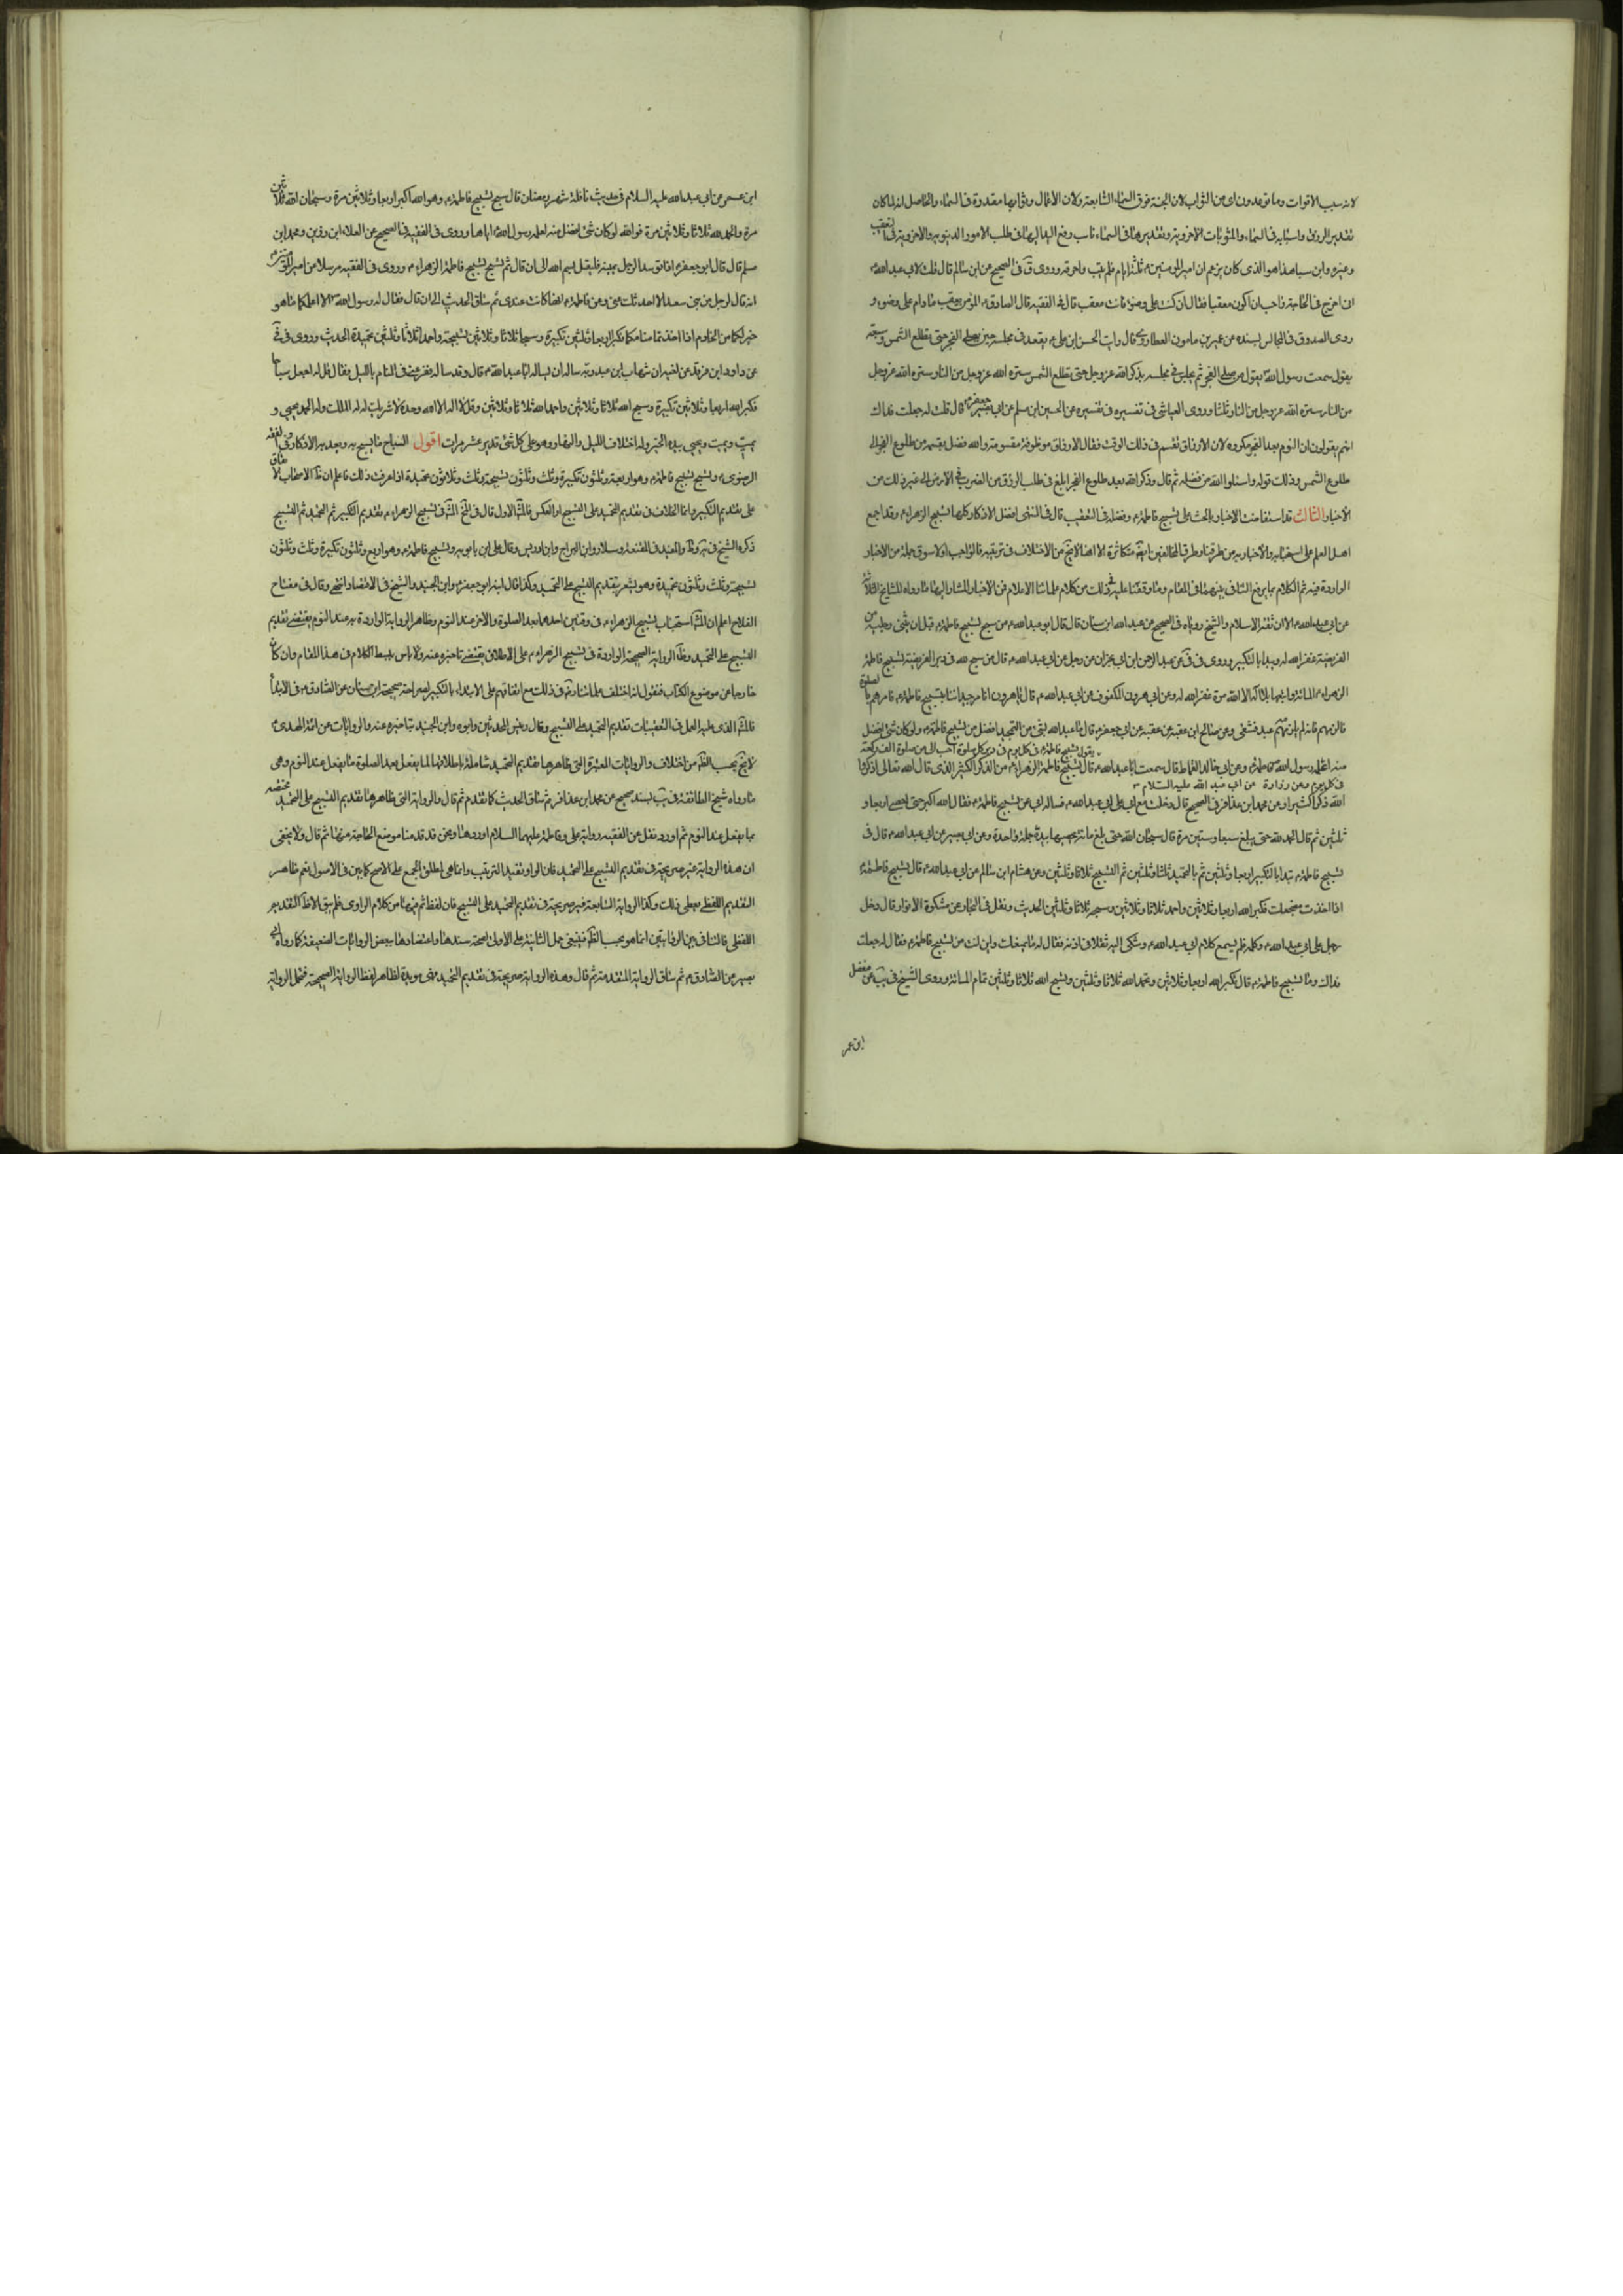 لانه سبب الاقوات وما توعدون اى من الثواب لان الجنة فوق السماء السابعة ولان الاعمال وثوابها مقدرة فى السماء والحاصل انه لما كان
تقدير الرزق واسبابه فى السماء والمثوبات الاخروية وتقديرها فى السماء ناسب رفع اليد اليها فى طلب الامور الدنيوية والاخروية فى التعقيب
وغيره وابن سبا هذا هو الذى كان يزعم ان امير المؤمنين ع ثلثة ايام فلم يتب واحرقه وروى فى الصحيح عن ابن سالم قال قلت لابى عبد الله ع
ان اخرج فى الحاجة فاحب ان اكون معقبا فقال ان كنت على وضوء فانت معقب قال فى الفقيه قال الصادق ع المؤمن معقب مادام على وضوء و
روى الصدوق فى المجالس بسنده عن عمير بن مامون العطاردى قال رايت الحسن ابن على ع يقعد فى مجلسه حين يصلى الفجر حتى تطلع الشمس وسمعته
يقول سمعت رسول الله يقول من صلى الفجر ثم جلس فى مجلسه يذكر الله عز وجل حتى تطلع الشمس ستره الله عز وجل من النار ستره الله عز وجل
من النار ستره الله عز وجل من النار ثلثا وروى العياشى فى تفسيره عن الحسين ابن مسلم عن ابى جعفر ع قال قلت له جعلت فداك
انهم يقولون ان النوم بعد الفجر مكروه لان الارزاق تقسم فى ذلك الوقت فقال الارزاق موظوفة مقسومة ولله فضل يقسمه من طلوع الفجر الى
طلوع الشمس وذلك قوله واسئلوا الله من فضله ثم قال وذكر الله بعد طلوع الفجر ابلغ فى طلب الرزق من الضرب فى الارض الى غير ذلك من
الاخبار الثالث قد استفاضت الاخبار بالحث على تسبيح فاطمة ع وفضله فى التعقيب قال فى المنتهى افضل الاذكار كلها تسبيح الزهراء ع وقد اجمع
اهل العلم على استحبابه والاخبار به من طرقنا وطرق المخالفين ايضا متكاثرة الا انها لا تخ من الاختلاف فى ترتيبه فالواجب اولا سوق جملة من الاخبار
الواردة فيه ثم الكلام بما يرفع التنافى بينهما فى المقام وما وقفنا عليه فى ذلك من كلام علمائنا الاعلام فمن الاخبار المشار اليها ما رواه المشايخ الثلاثة
عن ابى عبد الله ع الا ان ثقة الاسلام والشيخ روياه فى الصحيح عن عبد الله ابن سنان قال قال ابو عبد الله ع من سبح تسبيح فاطمة ع قبل ان يثنى رجليه من
الفريضة غفر الله له ويبدا بالتكبير وروى فى فى عن عبد الرحمن ابن ابى نجران عن رجل عن ابى عبد الله ع قال من سبح لله فى دبر الفريضة تسبيح فاطمة
الزهراء ع المائة واتبعها بلا اله الا الله مرة غفر الله له وعن ابى هرون المكفوف عن ابى عبد الله ع قال يا هرون انا نامر صبياننا بتسبيح فاطمة ع كما نامرهم بالصلوة
فالزمه فانه لم يلزمه عبد فشقى وعن صالح ابن عقبة عن عقبة عن ابى جعفر ع قال ما عبد الله بشئ من التحميد افضل من تسبيح فاطمة ع ولو كان شئ افضل
يقول تسبيح فاطمة ع فى كل يوم فى دبر كل صلوة احب الى من صلوة الف ركعة
منه لنحله رسول الله فاطمة ع وعن ابى خالد القماط قال سمعت ابا عبد الله ع قال تسبيح فاطمة الزهراء ع من الذكر الكثير الذى قال الله تعالى اذكروا
فى كل يوم وعن زرارة عن ابى عبد الله عليه السلام
الله ذكرا كثيرا وعن محمد ابن عذافر فى الصحيح قال دخلت مع ابى على ابى عبد الله ع فساله ابى عن تسبيح فاطمة ع فقال الله اكبر حتى احصى اربعا و
ثلثين ثم قال الحمد لله حتى بلغ سبعا وستين مرة قال سبحان الله حتى بلغ مائة يحصيها بيده جملة واحدة وعن ابى بصير عن ابى عبد الله ع قال فى
تسبيح فاطمة ع تبدا بالتكبير اربعا وثلثين ثم بالتحميد ثلثا وثلثين ثم التسبيح ثلاثا وثلثين وعن هشام ابن سالم عن ابى عبد الله ع قال تسبيح فاطمة ع
اذا اخذت مضجعك فكبر الله اربعا وثلاثين واحمد ثلاثا وثلاثين وسبحه ثلاثا وثلثين الحديث ونقل فى البحار عن مشكوة الانوار قال دخل
رجل على ابى عبد الله ع وكلمه فلم يسمع كلام ابى عبد الله ع وشكى اليه ثقلا فى اذنيه فقال له ما يمنعك واين انت من تسبيح فاطمة ع فقال له جعلت
فداك وما تسبيح فاطمة ع قال تكبر الله اربعا وثلاثين وتحمد الله ثلاثا وثلثين وتسبح الله ثلاثا وثلثين تمام المائة وروى الشيخ فى يب عن مفضل
ابن عمر
ابن عمر عن ابى عبد الله عليه السلام فى حديث نافلة شهر رمضان قال سبح تسبيح فاطمة ع وهو الله اكبر اربعا وثلاثين مرة وسبحان الله ثلاثا وثلثين
مرة والحمد لله ثلاثا وثلاثين مرة فوالله لو كان شئ افضل منه لعلمه رسول الله اياها وروى فى الفقيه فى الصحيح عن العلاء ابن رزين ومحمد ابن
مسلم قال قال ابو جعفر ع اذا توسد الرجل يمينه فليقل بسم الله الى ان قال ثم تسبح تسبيح فاطمة الزهراء ع وروى فى الفقيه مرسلا عن امير المؤمنين ع
انه قال لرجل من بنى سعد الا احدثك عنى وعن فاطمة ع انها كانت عندى ثم ساق الحديث الى ان قال فقال له رسول الله الا اعلمكما ما هو
خير لكما من الخادم اذا اخذتما منامكما فكبرا اربعا وثلثين تكبيرة وسبحا ثلاثا وثلاثين تسبيحة واحمدا ثلاثا وثلثين تحميدة الحديث وروى فى فى
عن داود ابن فرقد عن اخيه ان شهاب ابن عبد ربه ساله ان يسال ابا عبد الله ع قال وقد ساله يفزعه فى المنام بالليل فقال قل له اجعل سباحا
فكبر الله اربعا وثلاثين تكبيرة وسبح الله ثلاثا وثلاثين واحمد الله ثلاثا وثلاثين وقل لا اله الا الله وحده لا شريك له له الملك وله الحمد يحيى و
يميت ويميت ويحيى بيده الخير وله اختلاف الليل والنهار وهو على كل شئ قدير عشر مرات اقول السباح ما يسبح به ويعد به الاذكار وفى الفقه
الرضوى ع وتسبح تسبيح فاطمة ع وهو اربعة وثلثون تكبيرة وثلث وثلثون تسبيحة وثلث وثلاثون تحميدة اذا عرفت ذلك فاعلم ان ظ الاصحاب الاتفاق
على تقديم التكبير وانما الخلاف فى تقديم التحميد على التسبيح او العكس فالمش الاول قال فى المخ المش فى تسبيح الزهراء ع تقديم التكبير ثم التحميد ثم التسبيح
ذكره الشيخ فى يه وط والمفيد فى المقنعة وسلار وابن البراج وابن ادريس وقال على ابن بابويه وتسبيح فاطمة ع وهو اربع وثلثون تكبيرة وثلث وثلثون
تسبيحة وثلث وثلثون تحميدة وهو يشعر بتقديم التسبيح على التحميد وكذا قال ابنه ابو جعفر وابن الجنيد والشيخ فى الاقتصاد انتهى وقال فى مفتاح
الفلاح اعلم ان المش استحباب تسبيح الزهراء ع فى وقتين احدهما بعد الصلوة والاخر عند النوم وظاهر الرواية الواردة به عند النوم يقتضى تقديم
التسبيح على التحميد وظ الرواية الصحيحة الواردة فى تسبيح الزهراء ع على الاطلاق يقتضى تاخيره عنه ولا باس ببسط الكلام فى هذا المقام وان كان
خارجا عن موضوع الكتاب فنقول انه اختلف علمائنا ره فى ذلك مع اتفاقهم على الابتداء بالتكبير لصراحة صحيحة ابن سنان عن الصادق ع فى الابتداء
فالمش الذى عليه العمل فى التعقيبات تقديم التحميد على التسبيح وقال رئيس المحدثين وابوه وابن الجنيد بتاخيره عنه والروايات عن ائمة الهدى ع
لا تخ بحسب الظ من اختلاف والروايات المعتبرة التى ظاهرها تقديم التحميد شاملة باطلاقها لما يفعل بعد الصلوة ما يفعل عند النوم وهى
ما رواه شيخ الطائفة فى يب بسند صحيح عن محمد ابن عذافر ثم ساق الحديث كما تقدم ثم قال والرواية التى ظاهرها تقديم التسبيح على التحميد مختصة
بما يفعل عند النوم ثم اورد نقل عن الفقيه رواية على وفاطمة عليهما السلام اوردها ونحن قد قدمنا موضع الحاجة منها ثم قال ولا يخفى
ان هذه الرواية غير صريحة فى تقديم التسبيح على التحميد فان الواو لا تفيد الترتيب وانما هى لمطلق الجمع على الاصح كما بين فى الاصول نعم ظاهر
التقديم اللفظى يعطى ذلك وكذا الرواية السابعة غير صريحة فى تقديم التحميد على التسبيح فان لفظ ثم فيها من كلام الراوى فلم يبق الا ظ التقديم
اللفظى فالتنافى بين الروايتين انما هو بحسب الظ فينبغى حمل الثانية على الاولى لصحة سندها واعتضادها ببعض الروايات الضعيفة كما رواه ابو
بصير عن الصادق ع ثم ساق الرواية المتقدمة ثم قال وهذه الرواية صريحة فى تقديم التحميد فهى مويدة لظاهر لفظ الرواية الصحيحة فتحمل الرواية